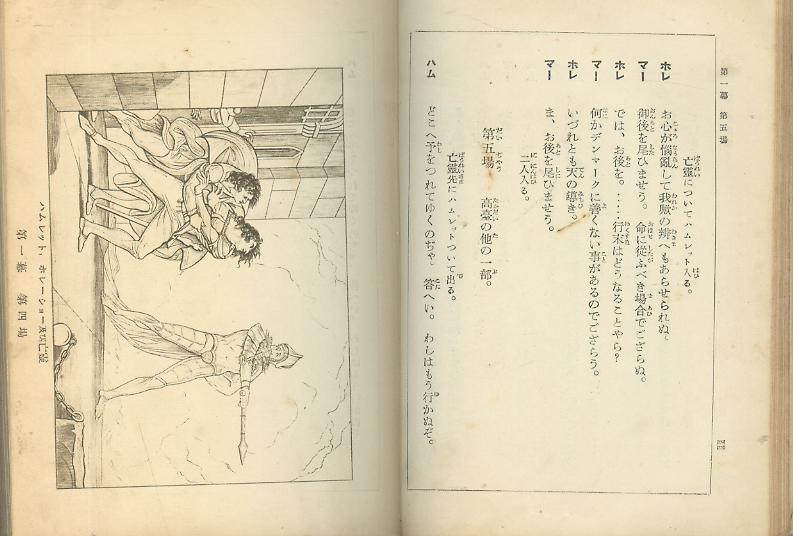 第一幕 第五場
四四
亡靈についてハムレット入る。
ホレ お心が惱亂して我歟の辨へもあらせられぬ。
マー 御後を尾ひませう。 命に從ふべき場合でござらぬ。
ホレ では、お後を。‥‥行末はどうなることやら?
マー 何かデンマークに善くない事があるのでござらう。
ホレ いづれとも天の導き。
マー ま、お後を尾ひませう。
二人入る。
第五場 高臺の他の一部。
亡靈先にハムレットついて出る。
ハム どこへ予をつれてゆくのぢや 答へい。 わしはもう行かぬぞ。
ハムレット、ホレーショー及び亡靈
第一幕 第四場